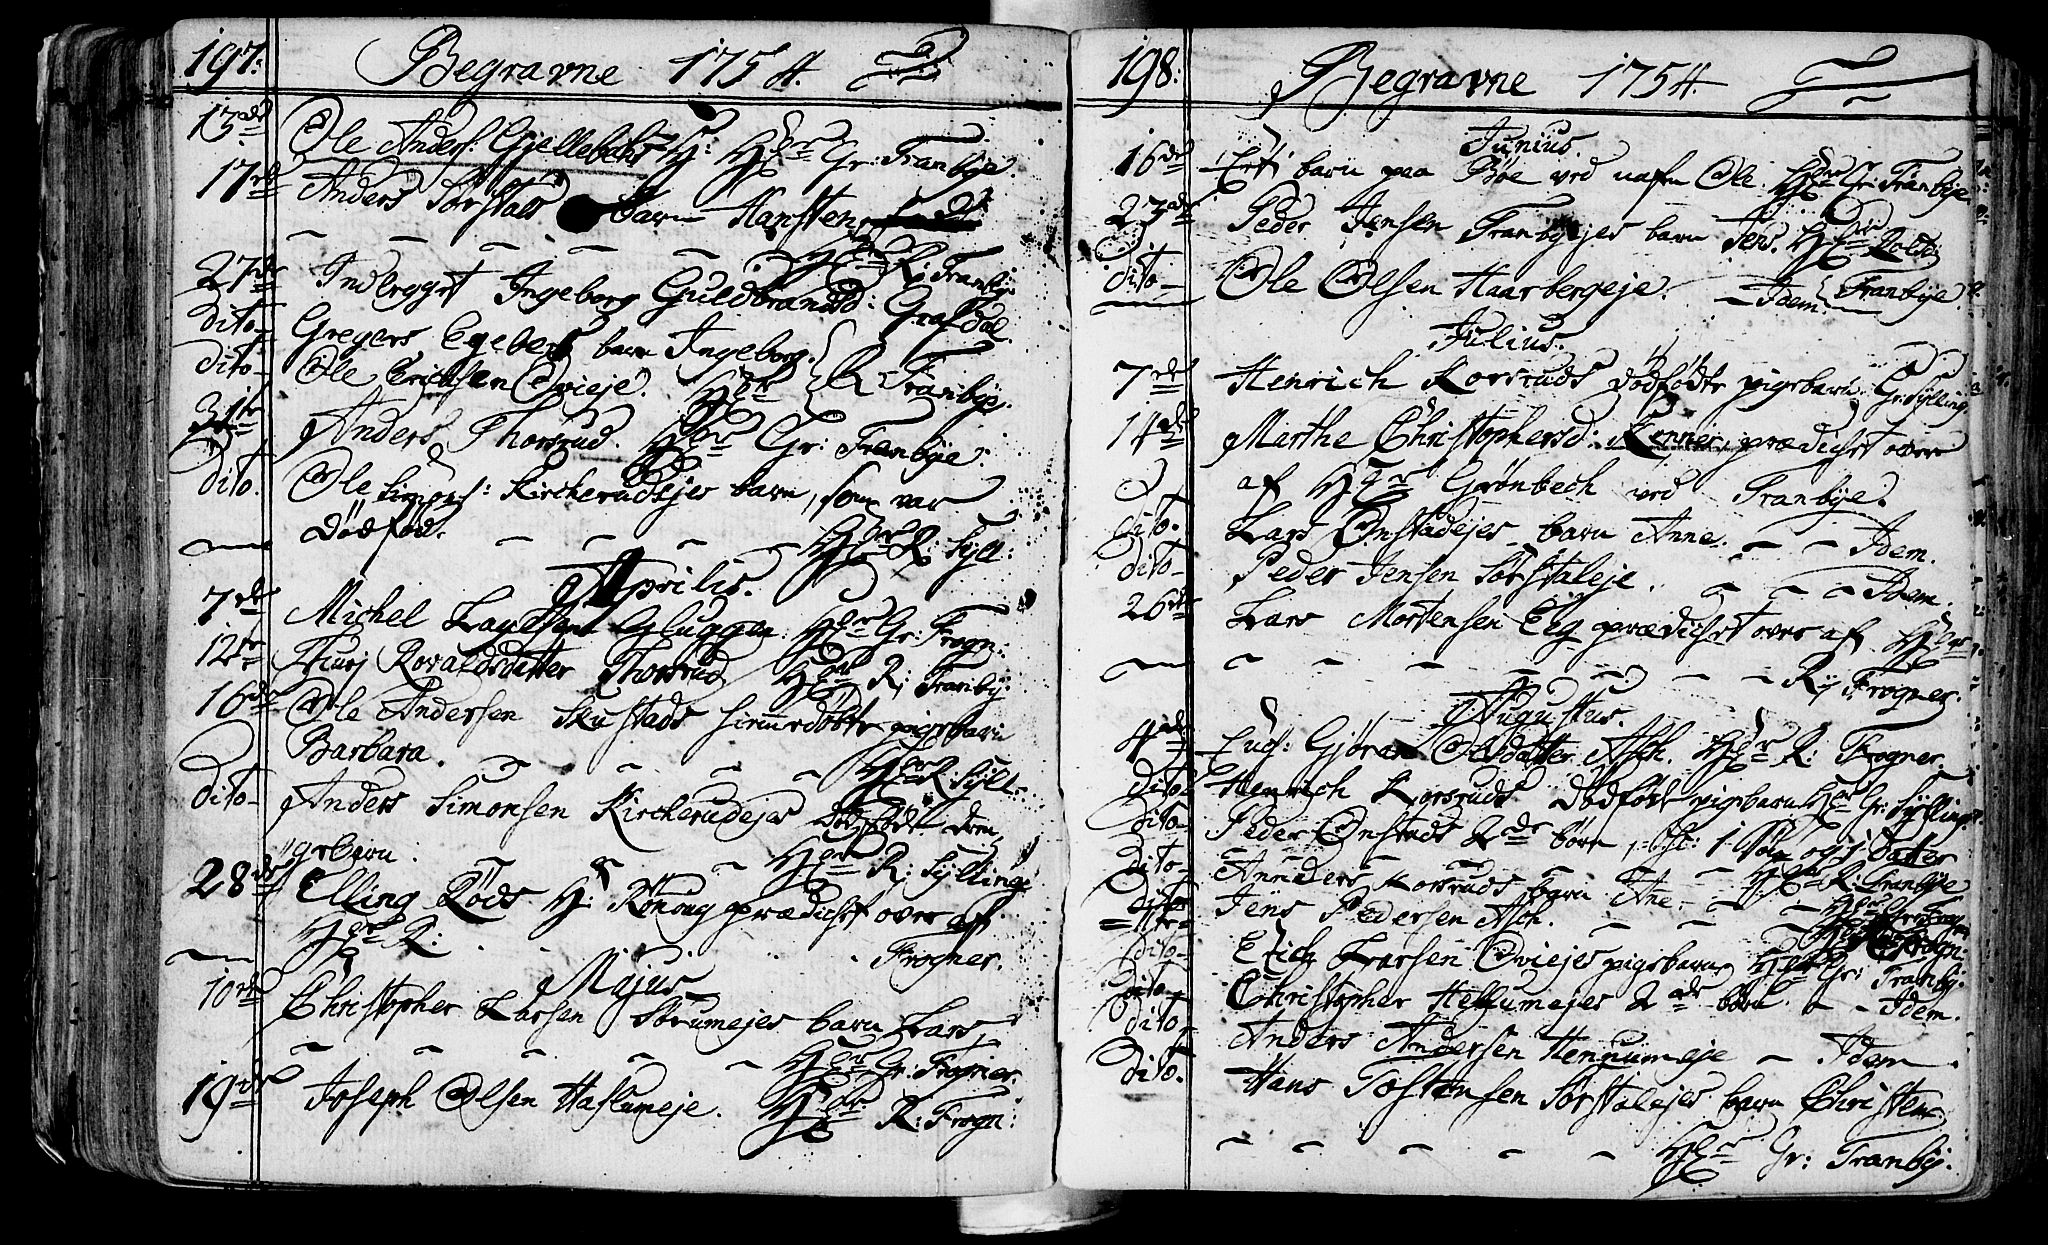 197. Begravne 1754.
13de Ole Anders: Gjellebechs H: Hr Gr: Tranbye.
17de Anders Sørstads barn Kansten
Hr R: Tranby:
27de Indbrygt Ingeborg Guldbrandsd: Grafdal.
Dito Gregers Egebergs barn Ingeborg.
Dito Ole Erichsen Ovieje. Hr R: Tranbye.
31te Anders Thorsrud. Hr Gr: Tranbye.
Dito. Ole Simons: Kirkerudejes barn, som var
Dødfød. Hr R: Syll:
Aprilis.
7de Michel Gluggen. Hr Gr: Frogn:
12te Rovaldsdatter Thorsrud Hr R: Tranby:
16de Ole Andersen Skustads hiemmedøbte pigebarn
Barbara. Hr R: Syll:
Dito Anders Simonsen Kirkerudejes dødfødt Dom
Hr R: Syllinge
28de Elling Røds H: Rønnoug prædicht over af
Hr R: Frogner.
Majus
10de Christopher Larsen Sørumejes barn Lars
Hr Gr: Frogner.
19de Joseph Olsen Haslumeje. Hr R: Frogn:
198: Begravne 1754.
Junius.
16de Eet barn paa Bøe ved nafn Ole. Hr Gr: Tranbye
23de Peder Jensen Tranbyejes barn Jens. Hr
Dito Ole Olsen Haarbergeje. Idem. Tranbye
Julius.
7de Henrich Korsruds dødfødte pigebarn. Gr: Sylling.
14de Marthe Christophersd: Kenner, prædicht over
af Hr Grønbech ved Tranbye.
Dito. Lars Onstadejes barn Anne. Idem.
Dito Peder Jensen Sørstaleje. Idem.
26de Lars Mortensen Eeg prædicht over af Hr
Rij Frogner.
Augustus.
4de Gjøran Olsdatter Ask. Hr R: Frogner.
Dito Henrich Korsruds Dødfødt pigebarn Hr Gr: Sylling.
Dito Peder Onstads 2de børn, 1 Søn og 1 Datter
Hr R: Tranbye
Dito Annders Korsruds barn Ane.
Dito Jens Pedersen Ask.
Dito Erich Larsen Oviejes pigebarn Hr Gr: Tranby:
Dito Christopher Hellumejes 2de børn. Idem.
Dito Anders Andersen Hennumeje Idem.
Dito. Hans Tostensen Sørstalejes barn Christen
Hr Gr: Tranby.